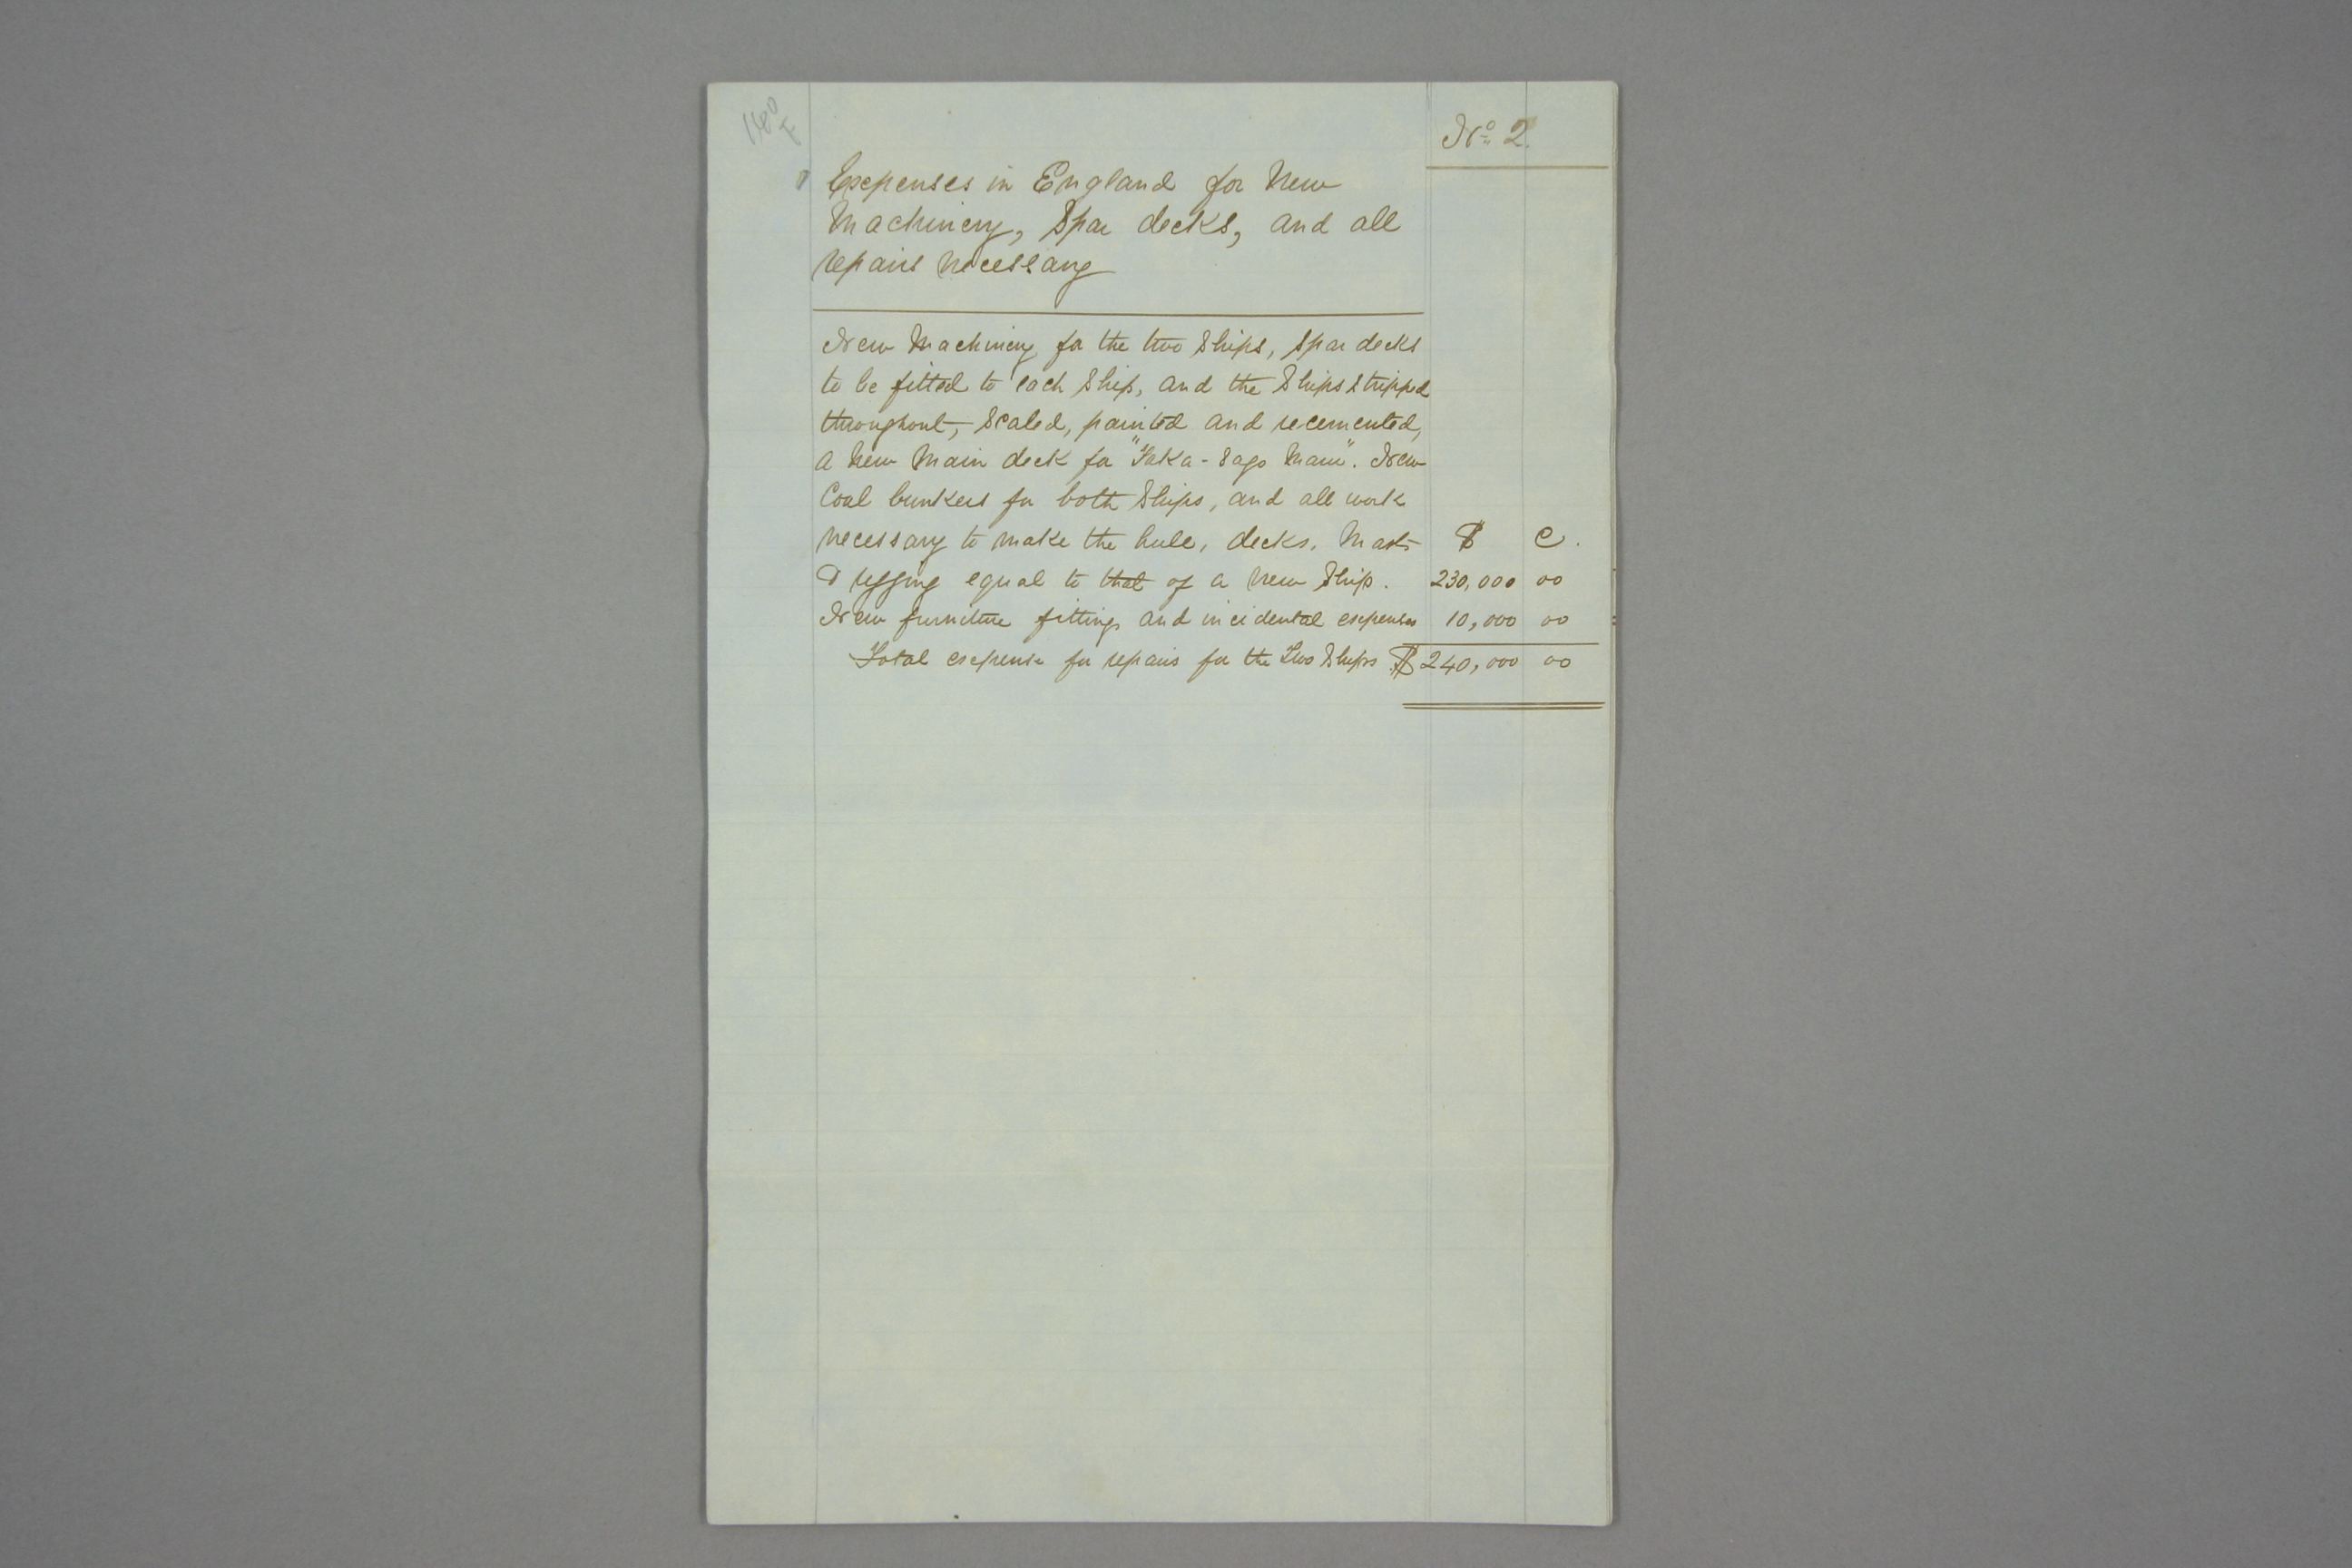 No 2.
Expenses in England for New
Machinery, Spar decks, and all
repairs necessary
New Machinery for the two Ships, spar decks
to be fitted to each Ship, and the Ships stripped
throughout, scaled, painted and recemented,
a new Main deck for "Taka-sago Maru". New
Coal bunkers for both Ships, and all work
necessary to make the hull, decks, Masts $ c.
& rigging equal to that of a new Ship. 230,000 00
New furniture fittings and incidental expenses 10,000 00
Total expense for repairs for the Two Ships $ 240,000 00